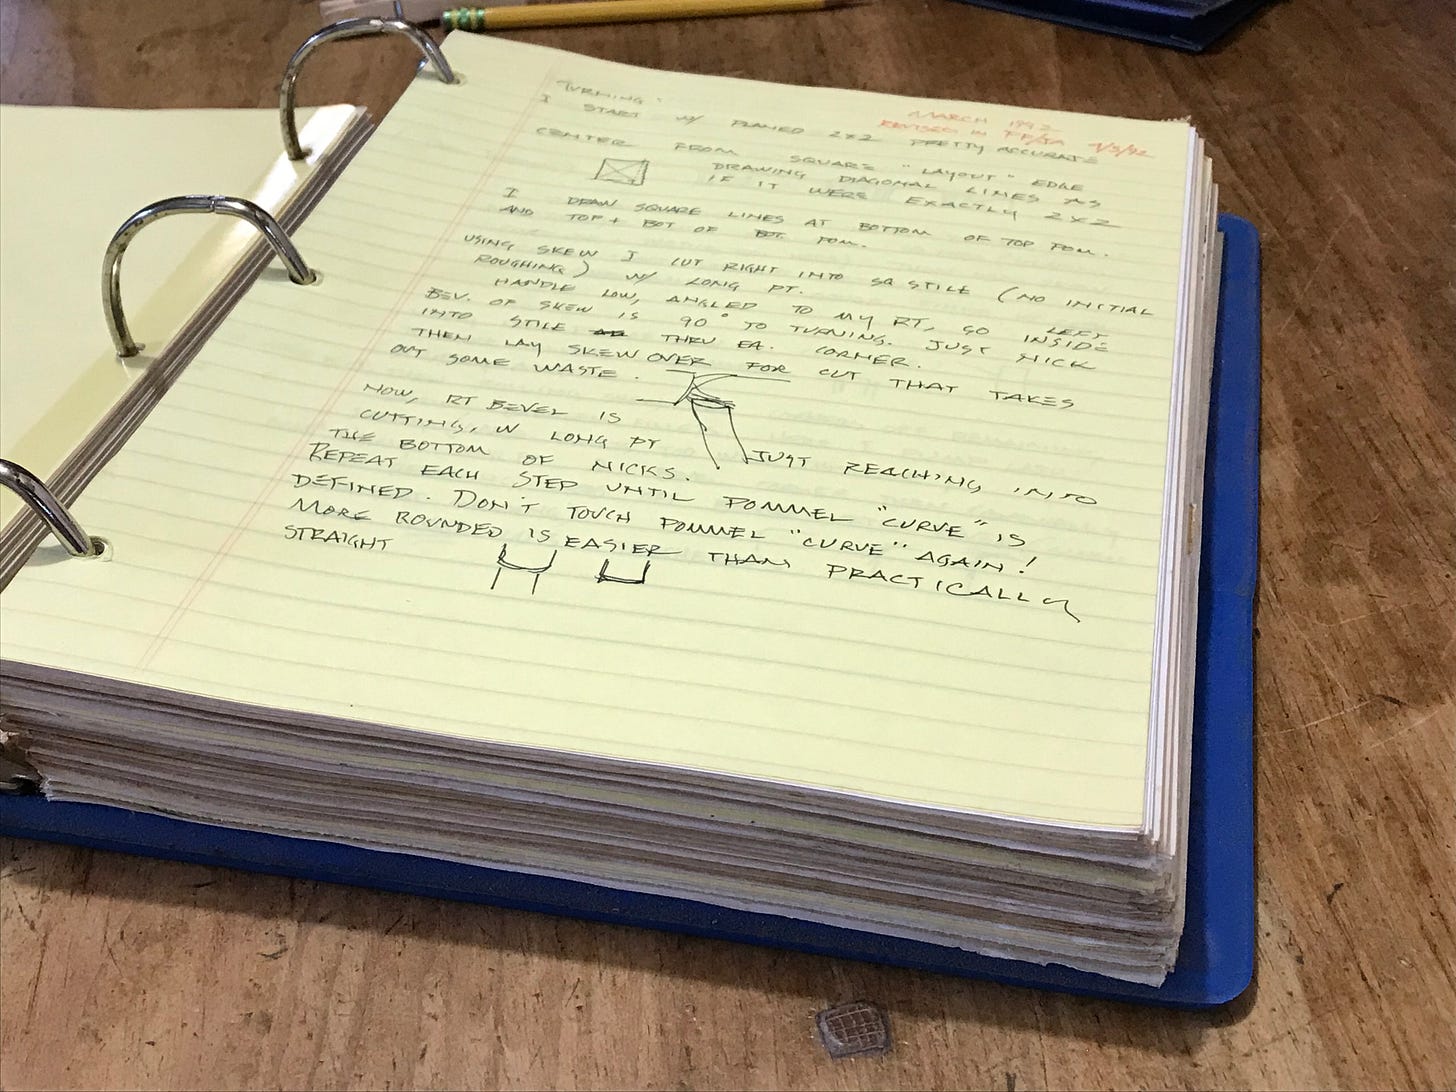 TURNING:
MARCH 1992
REVISED IN 9/3/92
I START W/ PLANED 2X2 PRETTY ACCURATE
CENTER FROM SQUARE "LAYOUT" EDGE
DRAWING DIAGONAL LINES AS
IF IT WERE EXACTLY 2X2
I DRAW SQUARE LINES AT BOTTOM OF TOP POM.
AND TOP + BOT OF BOT. POM.
USING SKEW I CUT RIGHT INTO SQ STILE (NO INITIAL
ROUGHING) W/ LONG PT.
HANDLE LOW, ANGLED TO MY RT, GO LEFT,
BEV. OF SKEW IS 90° TO TURNING. JUST INSIDE
INTO STILE THRU EA. CORNER. NICK
THEN LAY SKEW OVER FOR CUT THAT TAKES
OUT SOME WASTE.
NOW, RT BEVEL IS
CUTTING, W LONG PT JUST REACHING INTO
THE BOTTOM OF NICKS.
REPEAT EACH STEP UNTIL POMMEL "CURVE" IS
DEFINED. DON'T TOUCH POMMEL "CURVE" AGAIN!
MORE ROUNDED IS EASIER THAN PRACTICALLY
STRAIGHT